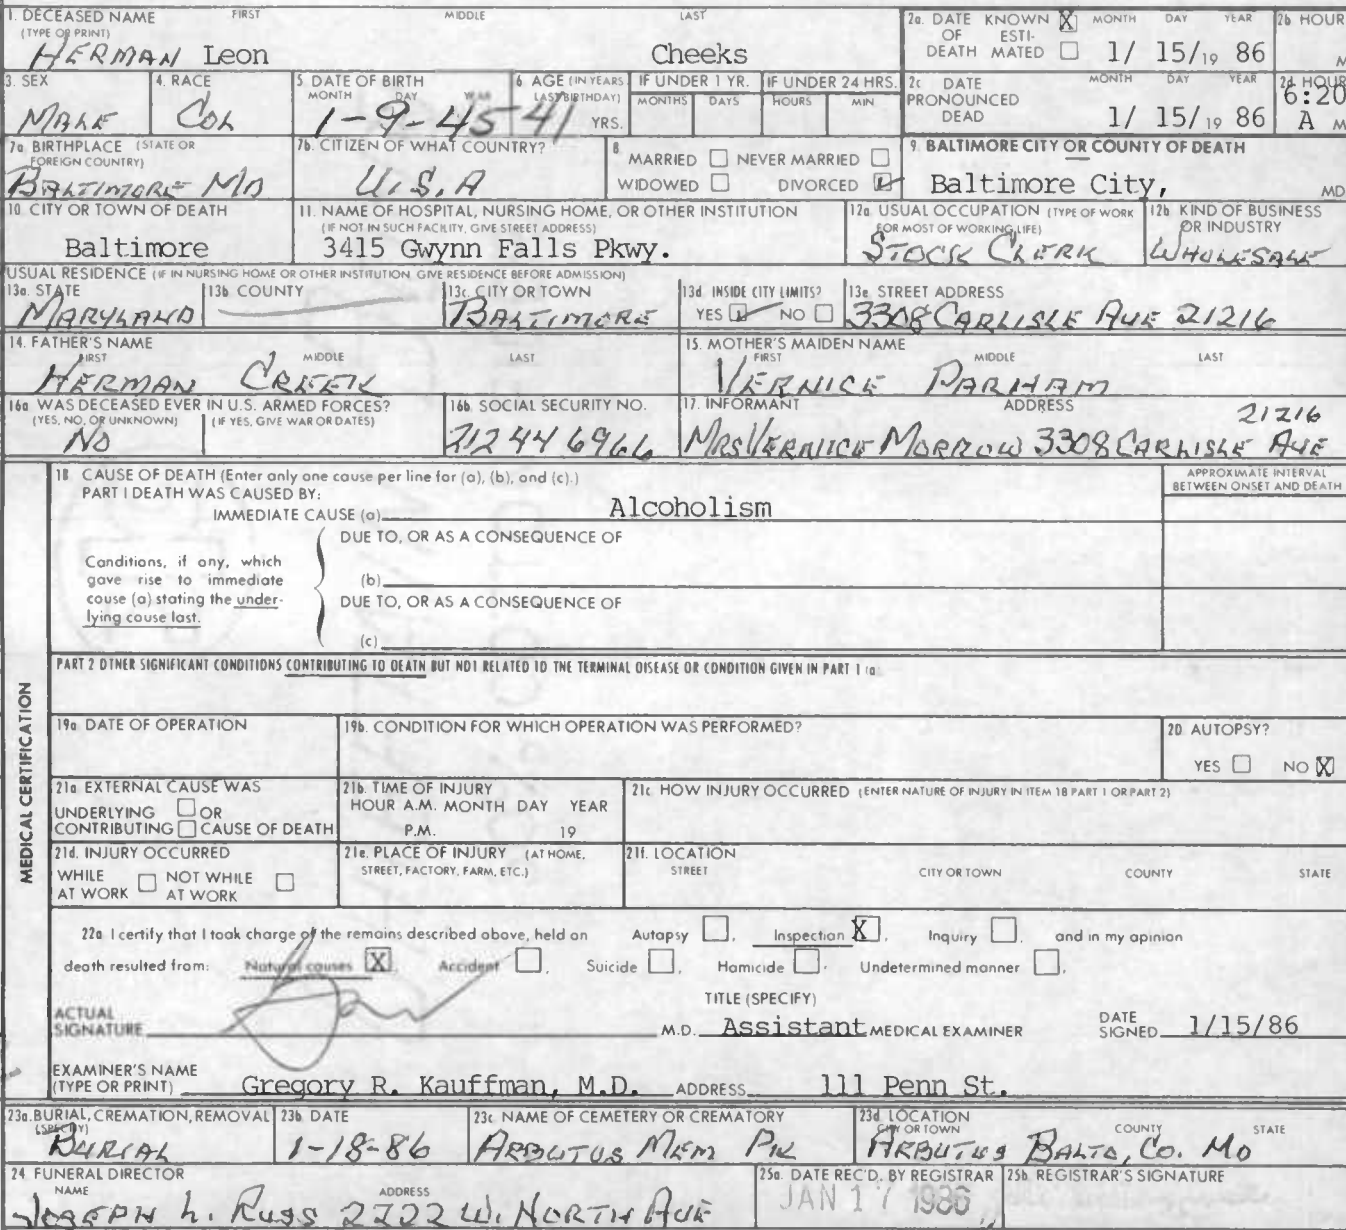 1. DECEASED NAME FIRST MIDDLE LAST
(TYPE OR PRINT)
HERMAN Leon Cheeks
2a. DATE OF DEATH KNOWN X ESTIMATED MONTH DAY YEAR
1/ 15/19 86
2b HOUR
M
3. SEX
MALE
4. RACE
COL
5 DATE OF BIRTH
MONTH DAY YEAR
1-9-45
6 AGE (IN YEARS LAST BIRTHDAY)
41 YRS.
IF UNDER 1 YR.
MONTHS DAYS
IF UNDER 24 HRS.
HOURS MIN
2c DATE PRONOUNCED DEAD MONTH DAY YEAR
1/ 15/19 86
2d HOUR
6:20
A M
7a BIRTHPLACE (STATE OR FOREIGN COUNTRY)
BALTIMORE MD
7b. CITIZEN OF WHAT COUNTRY?
U.S.A
8 MARRIED NEVER MARRIED
WIDOWED DIVORCED
9. BALTIMORE CITY OR COUNTY OF DEATH
Baltimore City, MD
10 CITY OR TOWN OF DEATH
Baltimore
11. NAME OF HOSPITAL, NURSING HOME, OR OTHER INSTITUTION
(IF NOT IN SUCH FACILITY, GIVE STREET ADDRESS)
3415 Gwynn Falls Pkwy.
12a. USUAL OCCUPATION (TYPE OF WORK FOR MOST OF WORKING LIFE)
STOCK CLERK
12b KIND OF BUSINESS OR INDUSTRY
WHOLESALE
USUAL RESIDENCE (IF IN NURSING HOME OR OTHER INSTITUTION GIVE RESIDENCE BEFORE ADMISSION)
13a. STATE
MARYLAND
13b COUNTY
13c. CITY OR TOWN
BALTIMORE
13d. INSIDE CITY LIMITS?
YES NO
13e STREET ADDRESS
3308 CARLISLE AVE 21216
14. FATHER'S NAME
FIRST MIDDLE LAST
HERMAN CREEK
15. MOTHER'S MAIDEN NAME
FIRST MIDDLE LAST
VERNICE PARHAM
16a WAS DECEASED EVER IN U.S. ARMED FORCES?
(YES, NO, OR UNKNOWN) (IF YES, GIVE WAR OR DATES)
NO
16b. SOCIAL SECURITY NO.
212 44 6966
17. INFORMANT ADDRESS
21216
MRS VERNICE MORROW 3308 CARLISLE AVE
MEDICAL CERTIFICATION
18 CAUSE OF DEATH (Enter only one cause per line for (a), (b), and (c).)
PART I DEATH WAS CAUSED BY:
IMMEDIATE CAUSE (a) Alcoholism
APPROXIMATE INTERVAL
BETWEEN ONSET AND DEATH
DUE TO, OR AS A CONSEQUENCE OF
Conditions, if any, which
gave rise to immediate
cause (a) stating the under-
lying cause last.
(b)
DUE TO, OR AS A CONSEQUENCE OF
(c)
PART 2 OTHER SIGNIFICANT CONDITIONS CONTRIBUTING TO DEATH BUT NOT RELATED TO THE TERMINAL DISEASE OR CONDITION GIVEN IN PART 1 (a)
19a DATE OF OPERATION
19b. CONDITION FOR WHICH OPERATION WAS PERFORMED?
20 AUTOPSY?
YES NO X
21a EXTERNAL CAUSE WAS
UNDERLYING OR
CONTRIBUTING CAUSE OF DEATH
21b. TIME OF INJURY
HOUR A.M. MONTH DAY YEAR
P.M. 19
21c HOW INJURY OCCURRED (ENTER NATURE OF INJURY IN ITEM 18 PART 1 OR PART 2)
21d. INJURY OCCURRED
WHILE AT WORK NOT WHILE AT WORK
21e. PLACE OF INJURY (AT HOME,
STREET, FACTORY, FARM, ETC.)
21f. LOCATION
STREET CITY OR TOWN COUNTY STATE
22a I certify that I took charge of the remains described above, held an Autopsy , Inspection X, Inquiry , and in my opinion
death resulted from: Natural causes X, Accident , Suicide , Homicide , Undetermined manner ,
ACTUAL
SIGNATURE M.D.
TITLE (SPECIFY)
Assistant MEDICAL EXAMINER
DATE
SIGNED 1/15/86
EXAMINER'S NAME
(TYPE OR PRINT) Gregory R. Kauffman, M.D. ADDRESS 111 Penn St.
23a. BURIAL, CREMATION, REMOVAL
(SPECIFY)
BURIAL
23b DATE
1-18-86
23c NAME OF CEMETERY OR CREMATORY
ARBUTUS MEM PK
23d LOCATION
CITY OR TOWN COUNTY STATE
ARBUTUS BALTO, CO. MD
24 FUNERAL DIRECTOR
NAME ADDRESS
JOSEPH L. RUSS 2222 W. NORTH AVE
25a. DATE REC'D. BY REGISTRAR
JAN 17 1986
25b. REGISTRAR'S SIGNATURE